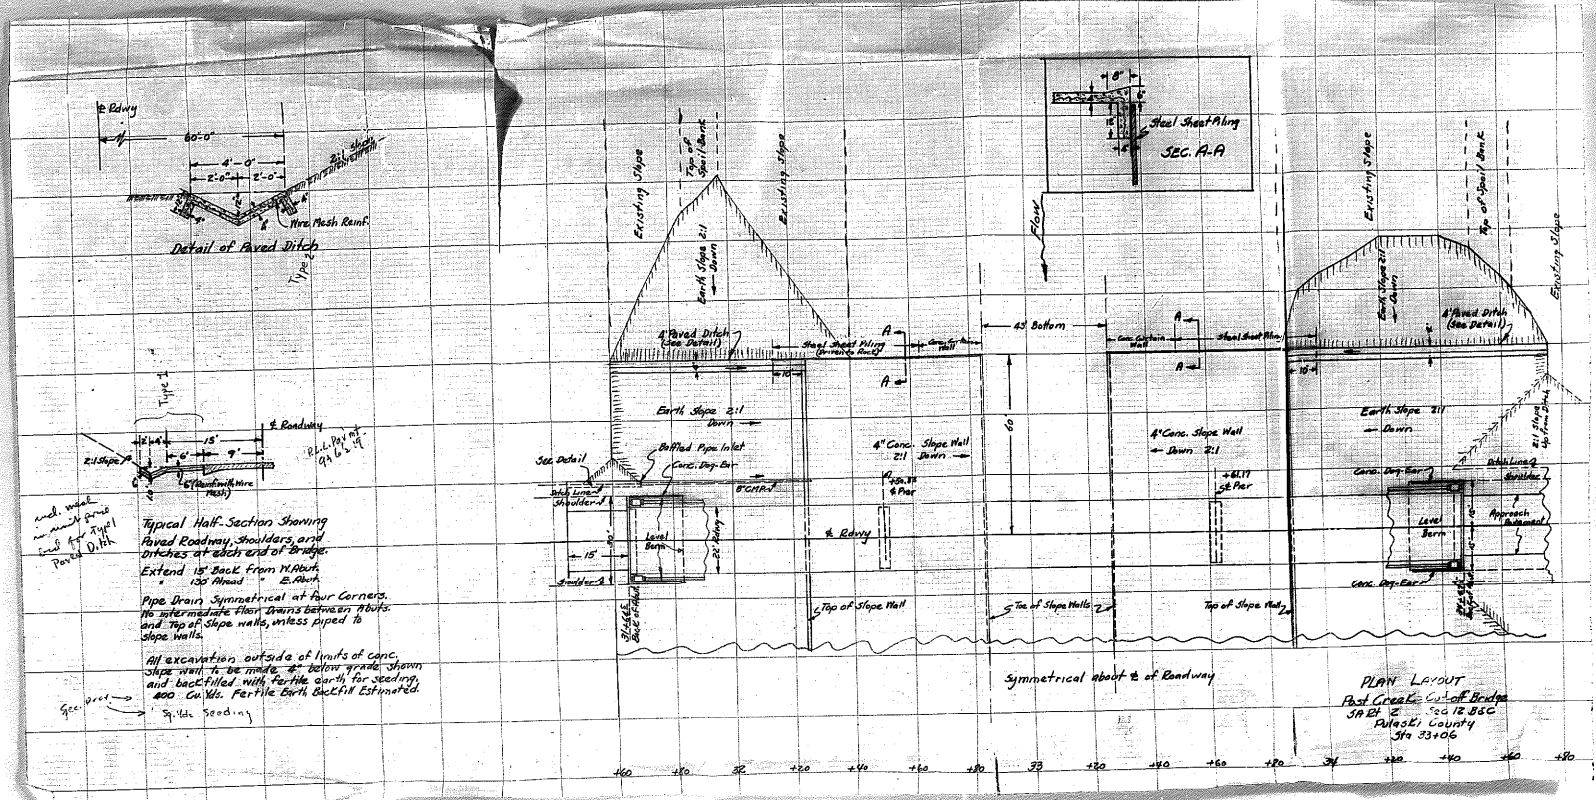 ℄ Rdwy
60'-0"
4'-0"
2'-0" 2'-0"
2:1 Slope
4" 4"
Wire Mesh Reinf.
Detail of Paved Ditch
Type 2
Type 1
℄ Roadway
2' 4' 15'
6' 9'
2:1 Slope
6" (Reinf. with Wire
Mesh)
incl. mesh
unit price
bid for Type 1
Paved Ditch
Typical Half-Section Showing
Paved Roadway, Shoulders, and
Ditches at each end of Bridge.
Extend 15' Back from W. Abut.
" 130' Ahead " E. Abut.
Pipe Drain Symmetrical at four Corners.
No intermediate floor Drains between Abuts.
and Top of Slope walls, unless piped to
slope walls.
All excavation outside of limits of conc.
slope wall to be made 4" below grade shown
and backfilled with fertile earth for seeding,
400 Cu. Yds. Fertile Earth Backfill Estimated.
Sq. Yds. Seeding
Existing Slope
Top of
Spoil Bank
Existing Slope
Earth Slope 2:1
Down
4' Paved Ditch
(See Detail)
Steel Sheet Piling
(Driven to Rock)
Conc. Curtain
Wall
A
A
10'
Earth Slope 2:1
Down
Baffled Pipe Inlet
Conc. Dog-Ear
See Detail
Ditch Line
Shoulder
8" CMP
4" Conc. Slope Wall
2:1 Down
℄ Pier
℄ Rdwy
Level
Berm
15'
30'
22' Rdwy
Shoulder
31+66.5
Back of Abut.
Top of Slope Wall
Toe of Slope Walls
Top of Slope Wall
8"
6"
Steel Sheet Piling
SEC. A-A
Flow
45' Bottom
60'
Conc. Curtain
Wall
Steel Sheet Piling
A
A
10'
4" Conc. Slope Wall
Down 2:1
+61.17
℄ Pier
Existing Slope
Top of Spoil Bank
Existing Slope
Earth Slope 2:1
Down
4' Paved Ditch
(See Detail)
Earth Slope 2:1
Down
2:1 Slope
Up from Ditch
Conc. Dog-Ear
Ditch Line
Shoulder
Level
Berm
Approach
Pavement
15' 15'
Conc. Dog-Ear
Symmetrical about ℄ of Roadway
PLAN LAYOUT
Post Creek Cut-off Bridge
SA Rt 2 Sec 12 B&C
Pulaski County
Sta 33+06
+60 +80 32 +20 +40 +60 +80 33 +20 +40 +60 +80 34 +20 +40 +60 +80